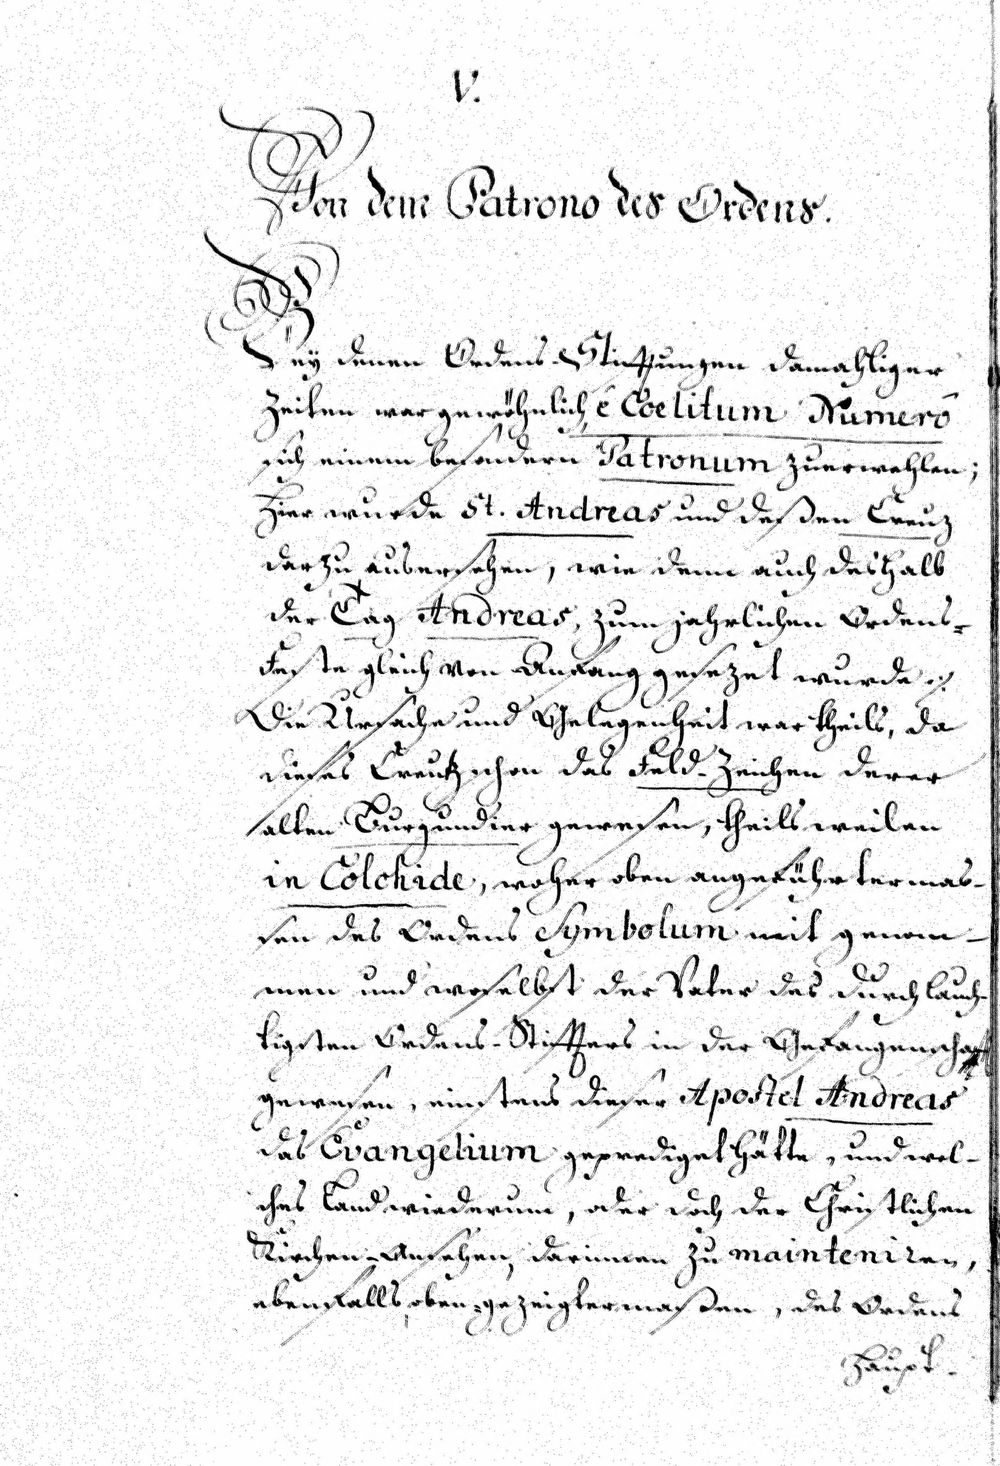 V.
Von dem Patrono des Ordens.
Bey denen Ordens-Stifftungen damahliger
Zeiten war gewöhnlich, è Coelitum Numerô
sich einem besondern Patronum zuerwehlen;
Hier wurde St. Andreas und deßen Creuz
darzu ausersehen, wie denn auch deshalb
der Tag Andreas, zum jahrlichen Ordens-
Feste gleich von Anfang gesezet wurde
Die Ursache und Gelegenheit war theils, da
dieses Creutz schon das Feld-Zeichen derer
alten Burgundier gewesen, theils weilen
in Colchide, woher oben angeführtermas-
sen des Ordens Symbolum mit genom-
men und woselbst der Vater des Durchlauch-
tigsten Ordens-Stiffters in der Gefangenschafft
gewesen, einstens dieser Apostel Andreas
das Evangelium geprediget hätte, und wel-
ches Land wiederum, oder doch der Christlichen
Kirchen-Ansehen, darinnen zu mainteniren,
ebenfalls, oben-gezeigtermaßen, des Ordens
Haupt-